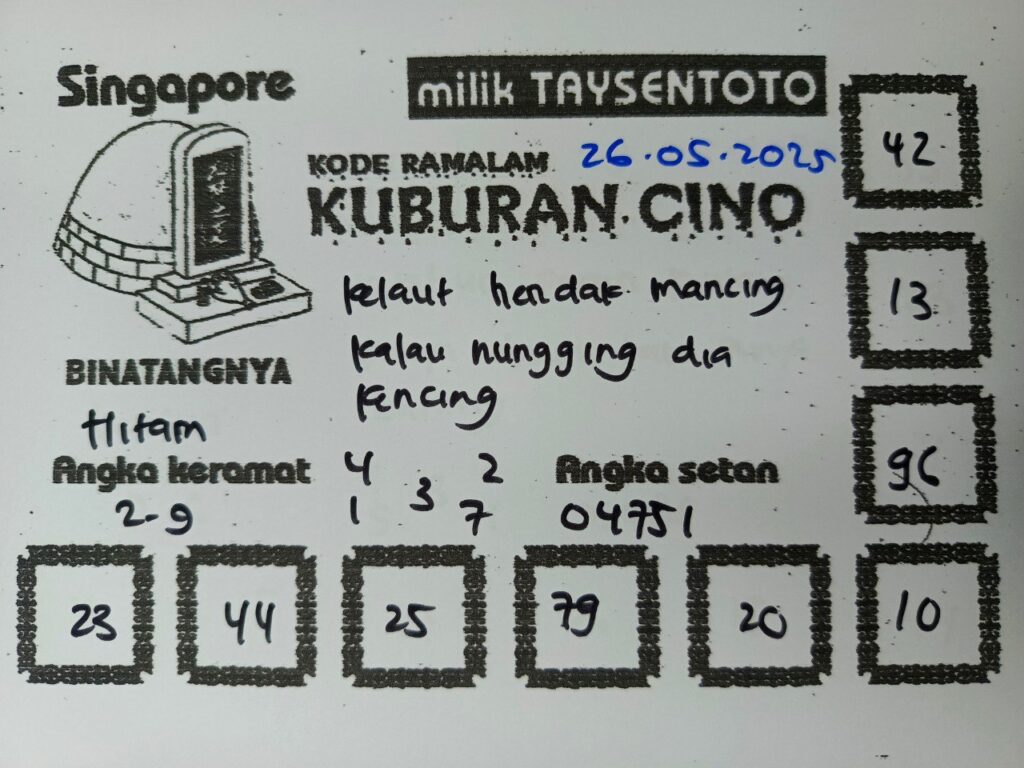 Singapore
milik TAYSENTOTO
KODE RAMALAM 26.05.2025
KUBURAN CINO
kelaut hendak mancing
kalau nungging dia
kencing
BINATANGNYA
Hitam
Angka keramat
2-9
4 2
3
1 7
Angka setan
04751
42
13
96
23 44 25 79 20 10